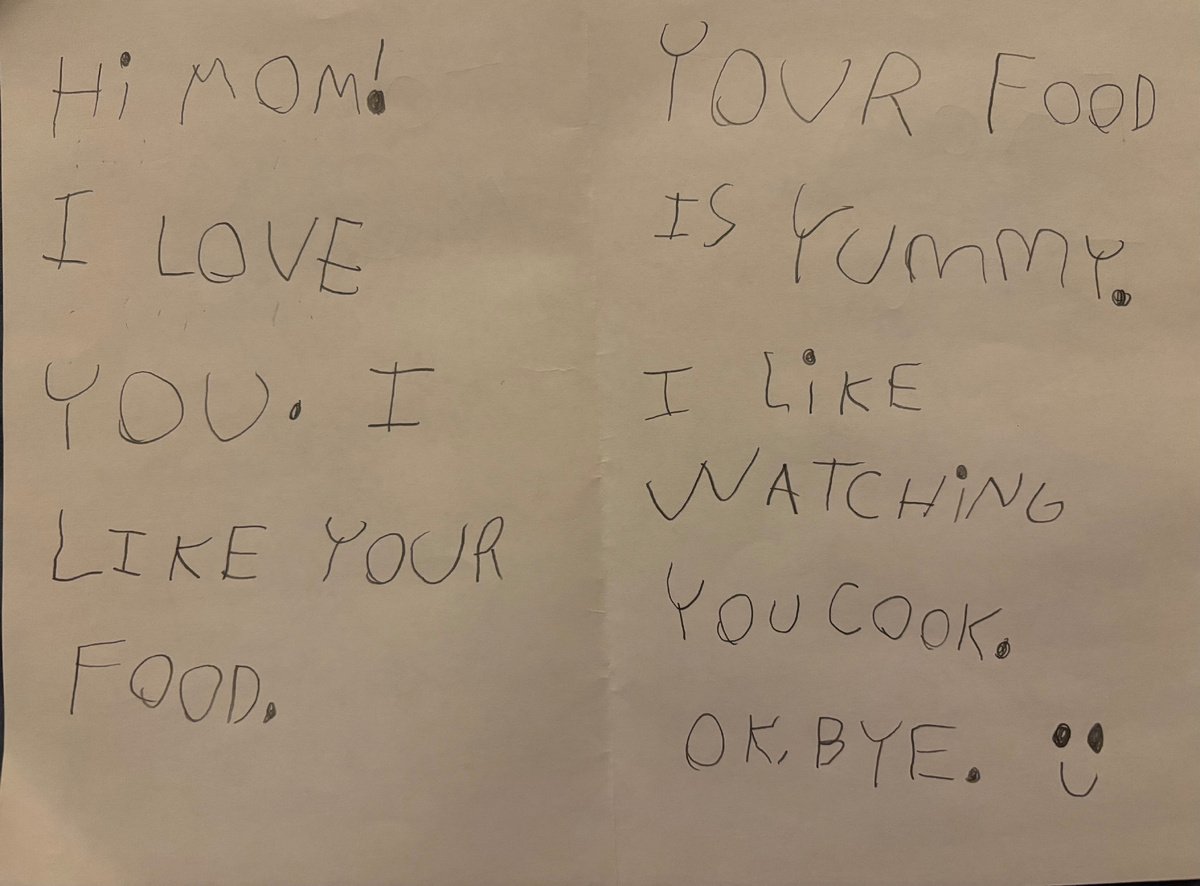 Hi MOM!
I LOVE
YOU. I
LIKE YOUR
FOOD.
YOUR FOOD
IS YUMMY.
I LiKE
WATCHiNG
YOU COOK.
OK, BYE.